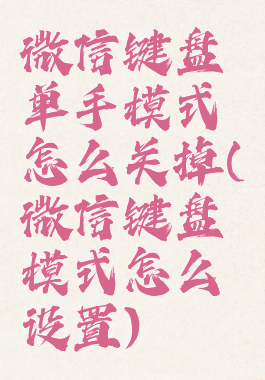 微信键盘
单手模式
怎么关掉(
微信键盘
模式怎么
设置)